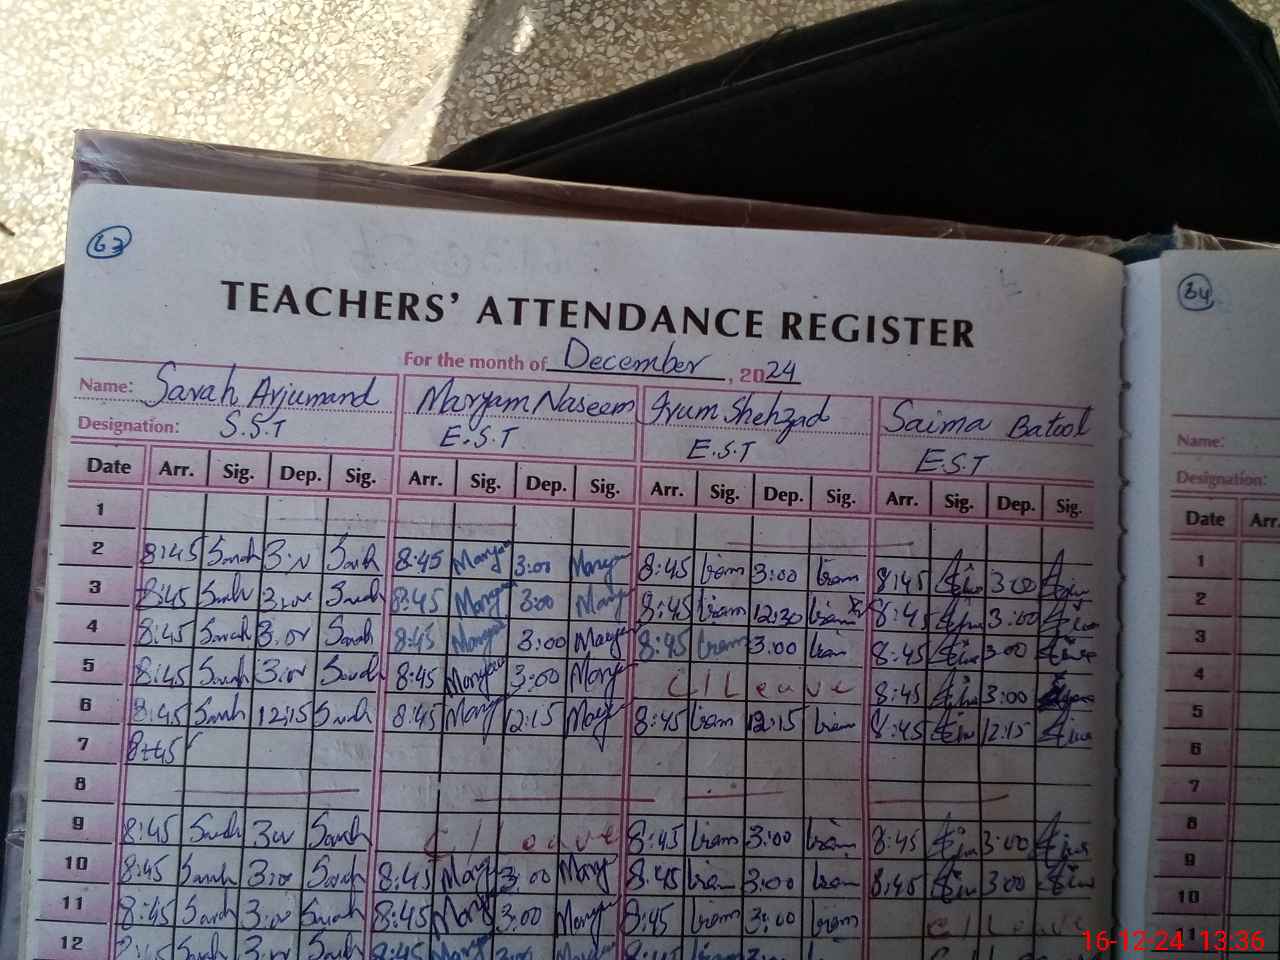 63
34
TEACHERS' ATTENDANCE REGISTER
For the month of December, 2024
Name: Sarah Arjumand Maryam Naseem Irum Shehzad Saima Batool
Designation: S.S.T E.S.T E.S.T E.S.T
Date Arr. Sig. Dep. Sig. Arr. Sig. Dep. Sig. Arr. Sig. Dep. Sig. Arr. Sig. Dep. Sig.
1
2 8:45 Sarah 3:00 Sarah 8:45 Maryam 3:00 Maryam 8:45 Iram 3:00 Iram 8:45 3:00
3 8:45 Sarah 3:00 Sarah 8:45 Maryam 3:00 Maryam 8:45 Iram 12:30 Iram 8:45 3:00
4 8:45 Sarah 3:00 Sarah 8:45 Maryam 3:00 Maryam 8:45 Iram 3:00 Iram 8:45 3:00
5 8:45 Sarah 3:00 Sarah 8:45 Maryam 3:00 Maryam C/Leave 8:45 3:00
6 8:45 Sarah 12:15 Sarah 8:45 Mary 12:15 Mary 8:45 Iram 12:15 Iram 8:45 12:15
7 8:45
8
9 8:45 Sarah 3:00 Sarah C/Leave 8:45 Iram 3:00 Iram 8:45 3:00
10 8:45 Sarah 3:00 Sarah 8:45 Mary 3:00 Mary 8:45 Iram 3:00 Iram 8:45 3:00
11 8:45 Sarah 3:00 Sarah 8:45 Mary 3:00 Mary 8:45 Iram 3:00 Iram C/Leave
12 8:45 Sarah 3:00 Sarah 8:45 Maryam 3:00 8:45 3:00
Name:
Designation:
Date Arr.
1
2
3
4
5
6
7
8
9
10
11
16-12-24 13:36